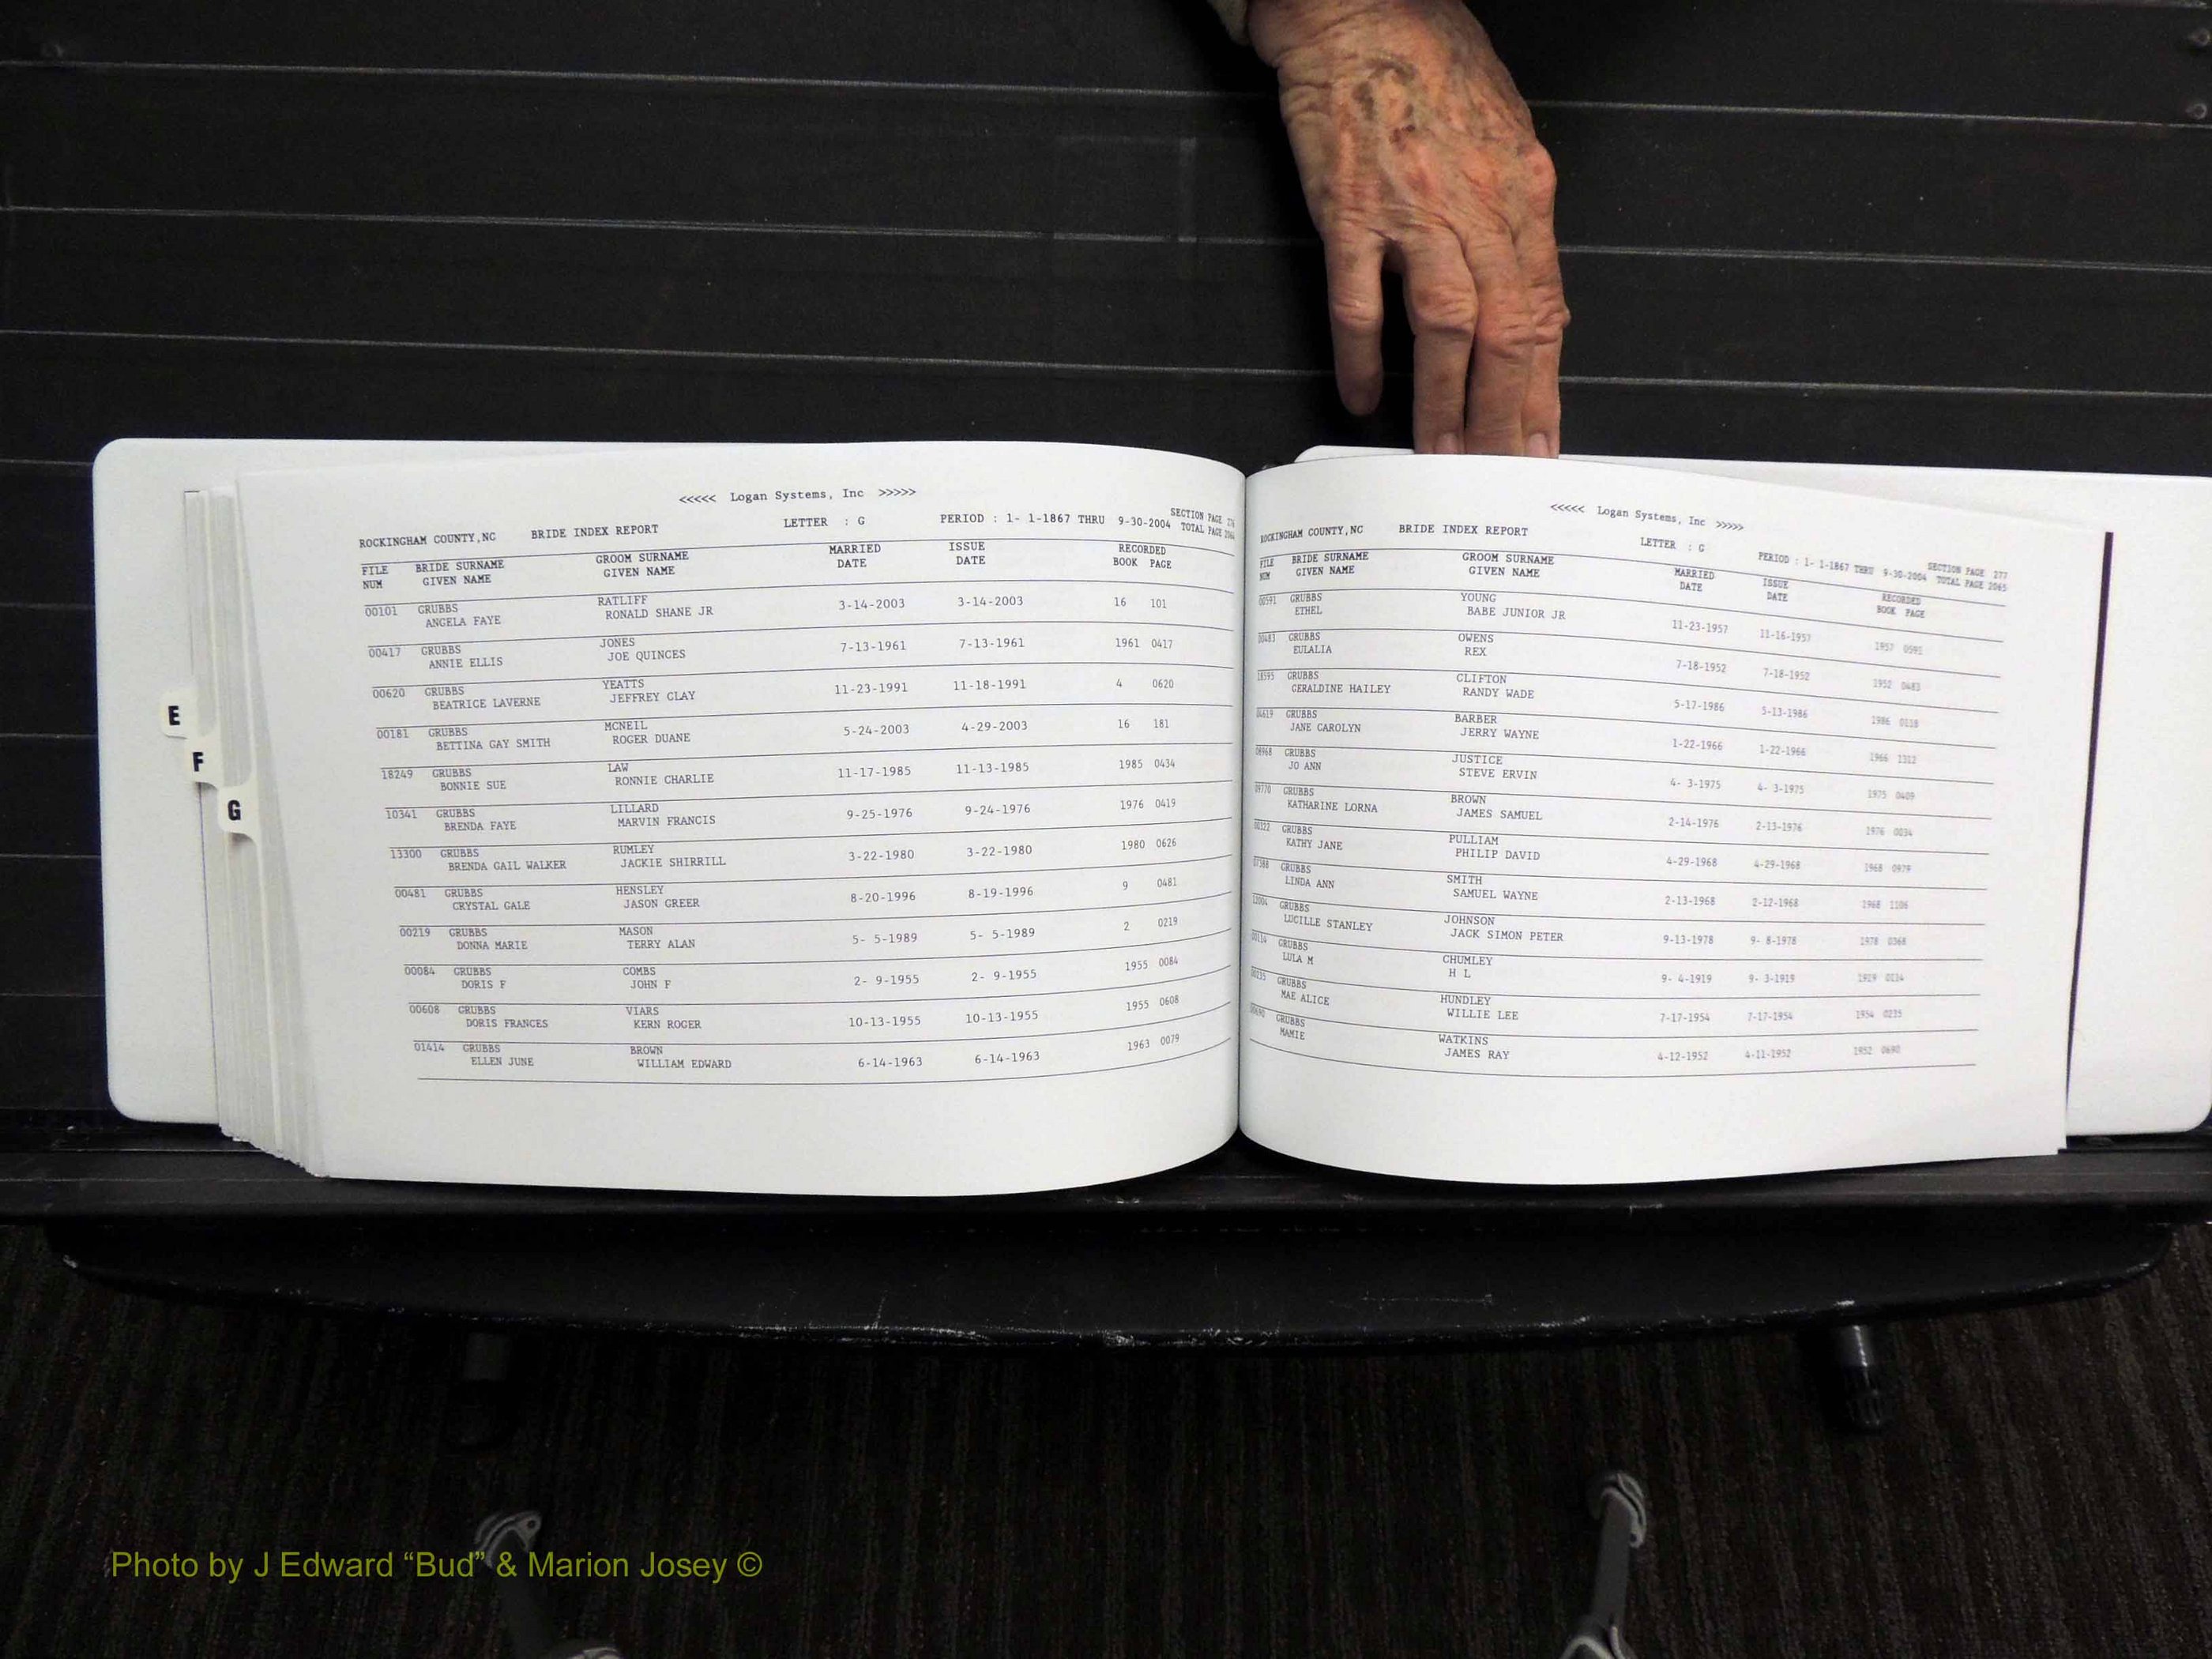 <<<<< Logan Systems, Inc >>>>>
ROCKINGHAM COUNTY,NC BRIDE INDEX REPORT LETTER : G PERIOD : 1- 1-1867 THRU 9-30-2004 SECTION PAGE
TOTAL PAGE
FILE BRIDE SURNAME GROOM SURNAME MARRIED ISSUE RECORDED
NUM GIVEN NAME GIVEN NAME DATE DATE BOOK PAGE
00101 GRUBBS RATLIFF 3-14-2003 3-14-2003 16 101
ANGELA FAYE RONALD SHANE JR
00417 GRUBBS JONES 7-13-1961 7-13-1961 1961 0417
ANNIE ELLIS JOE QUINCES
00620 GRUBBS YEATTS 11-23-1991 11-18-1991 4 0620
BEATRICE LAVERNE JEFFREY CLAY
00181 GRUBBS MCNEIL 5-24-2003 4-29-2003 16 181
BETTINA GAY SMITH ROGER DUANE
18249 GRUBBS LAW 11-17-1985 11-13-1985 1985 0434
BONNIE SUE RONNIE CHARLIE
10341 GRUBBS LILLARD 9-25-1976 9-24-1976 1976 0419
BRENDA FAYE MARVIN FRANCIS
13300 GRUBBS RUMLEY 3-22-1980 3-22-1980 1980 0626
BRENDA GAIL WALKER JACKIE SHIRRILL
00481 GRUBBS HENSLEY 8-20-1996 8-19-1996 9 0481
CRYSTAL GALE JASON GREER
00219 GRUBBS MASON 5- 5-1989 5- 5-1989 2 0219
DONNA MARIE TERRY ALAN
00084 GRUBBS COMBS 2- 9-1955 2- 9-1955 1955 0084
DORIS F JOHN F
00608 GRUBBS VIARS 10-13-1955 10-13-1955 1955 0608
DORIS FRANCES KERN ROGER
01414 GRUBBS BROWN 6-14-1963 6-14-1963 1963 0079
ELLEN JUNE WILLIAM EDWARD
E
F
G
<<<<< Logan Systems, Inc >>>>>
ROCKINGHAM COUNTY,NC BRIDE INDEX REPORT LETTER : G PERIOD : 1- 1-1867 THRU 9-30-2004 SECTION PAGE 277
TOTAL PAGE 2065
FILE BRIDE SURNAME GROOM SURNAME MARRIED ISSUE RECORDED
NUM GIVEN NAME GIVEN NAME DATE DATE BOOK PAGE
00591 GRUBBS YOUNG 11-23-1957 11-16-1957 1957
ETHEL BABE JUNIOR JR
00483 GRUBBS OWENS 7-18-1952 7-18-1952 1952 0483
EULALIA REX
18595 GRUBBS CLIFTON 5-17-1986 5-13-1986 1986
GERALDINE HAILEY RANDY WADE
04619 GRUBBS BARBER 1-22-1966 1-22-1966 1966 1312
JANE CAROLYN JERRY WAYNE
08968 GRUBBS JUSTICE 4- 3-1975 4- 3-1975 1975 0409
JO ANN STEVE ERVIN
09770 GRUBBS BROWN 2-14-1976 2-13-1976 1976 0034
KATHARINE LORNA JAMES SAMUEL
GRUBBS PULLIAM 4-29-1968 4-29-1968 1968 0979
KATHY JANE PHILIP DAVID
07388 GRUBBS SMITH 2-13-1968 2-12-1968 1968 1106
LINDA ANN SAMUEL WAYNE
GRUBBS JOHNSON 9-13-1978 9- 8-1978 1978 0368
LUCILLE STANLEY JACK SIMON PETER
GRUBBS CHUMLEY 9- 4-1919 9- 3-1919 1919
LULA M H L
00235 GRUBBS HUNDLEY 7-17-1954 7-17-1954 1954 0235
MAE ALICE WILLIE LEE
00690 GRUBBS WATKINS 4-12-1952 4-11-1952 1952 0690
MAMIE JAMES RAY
Photo by J Edward “Bud” & Marion Josey ©